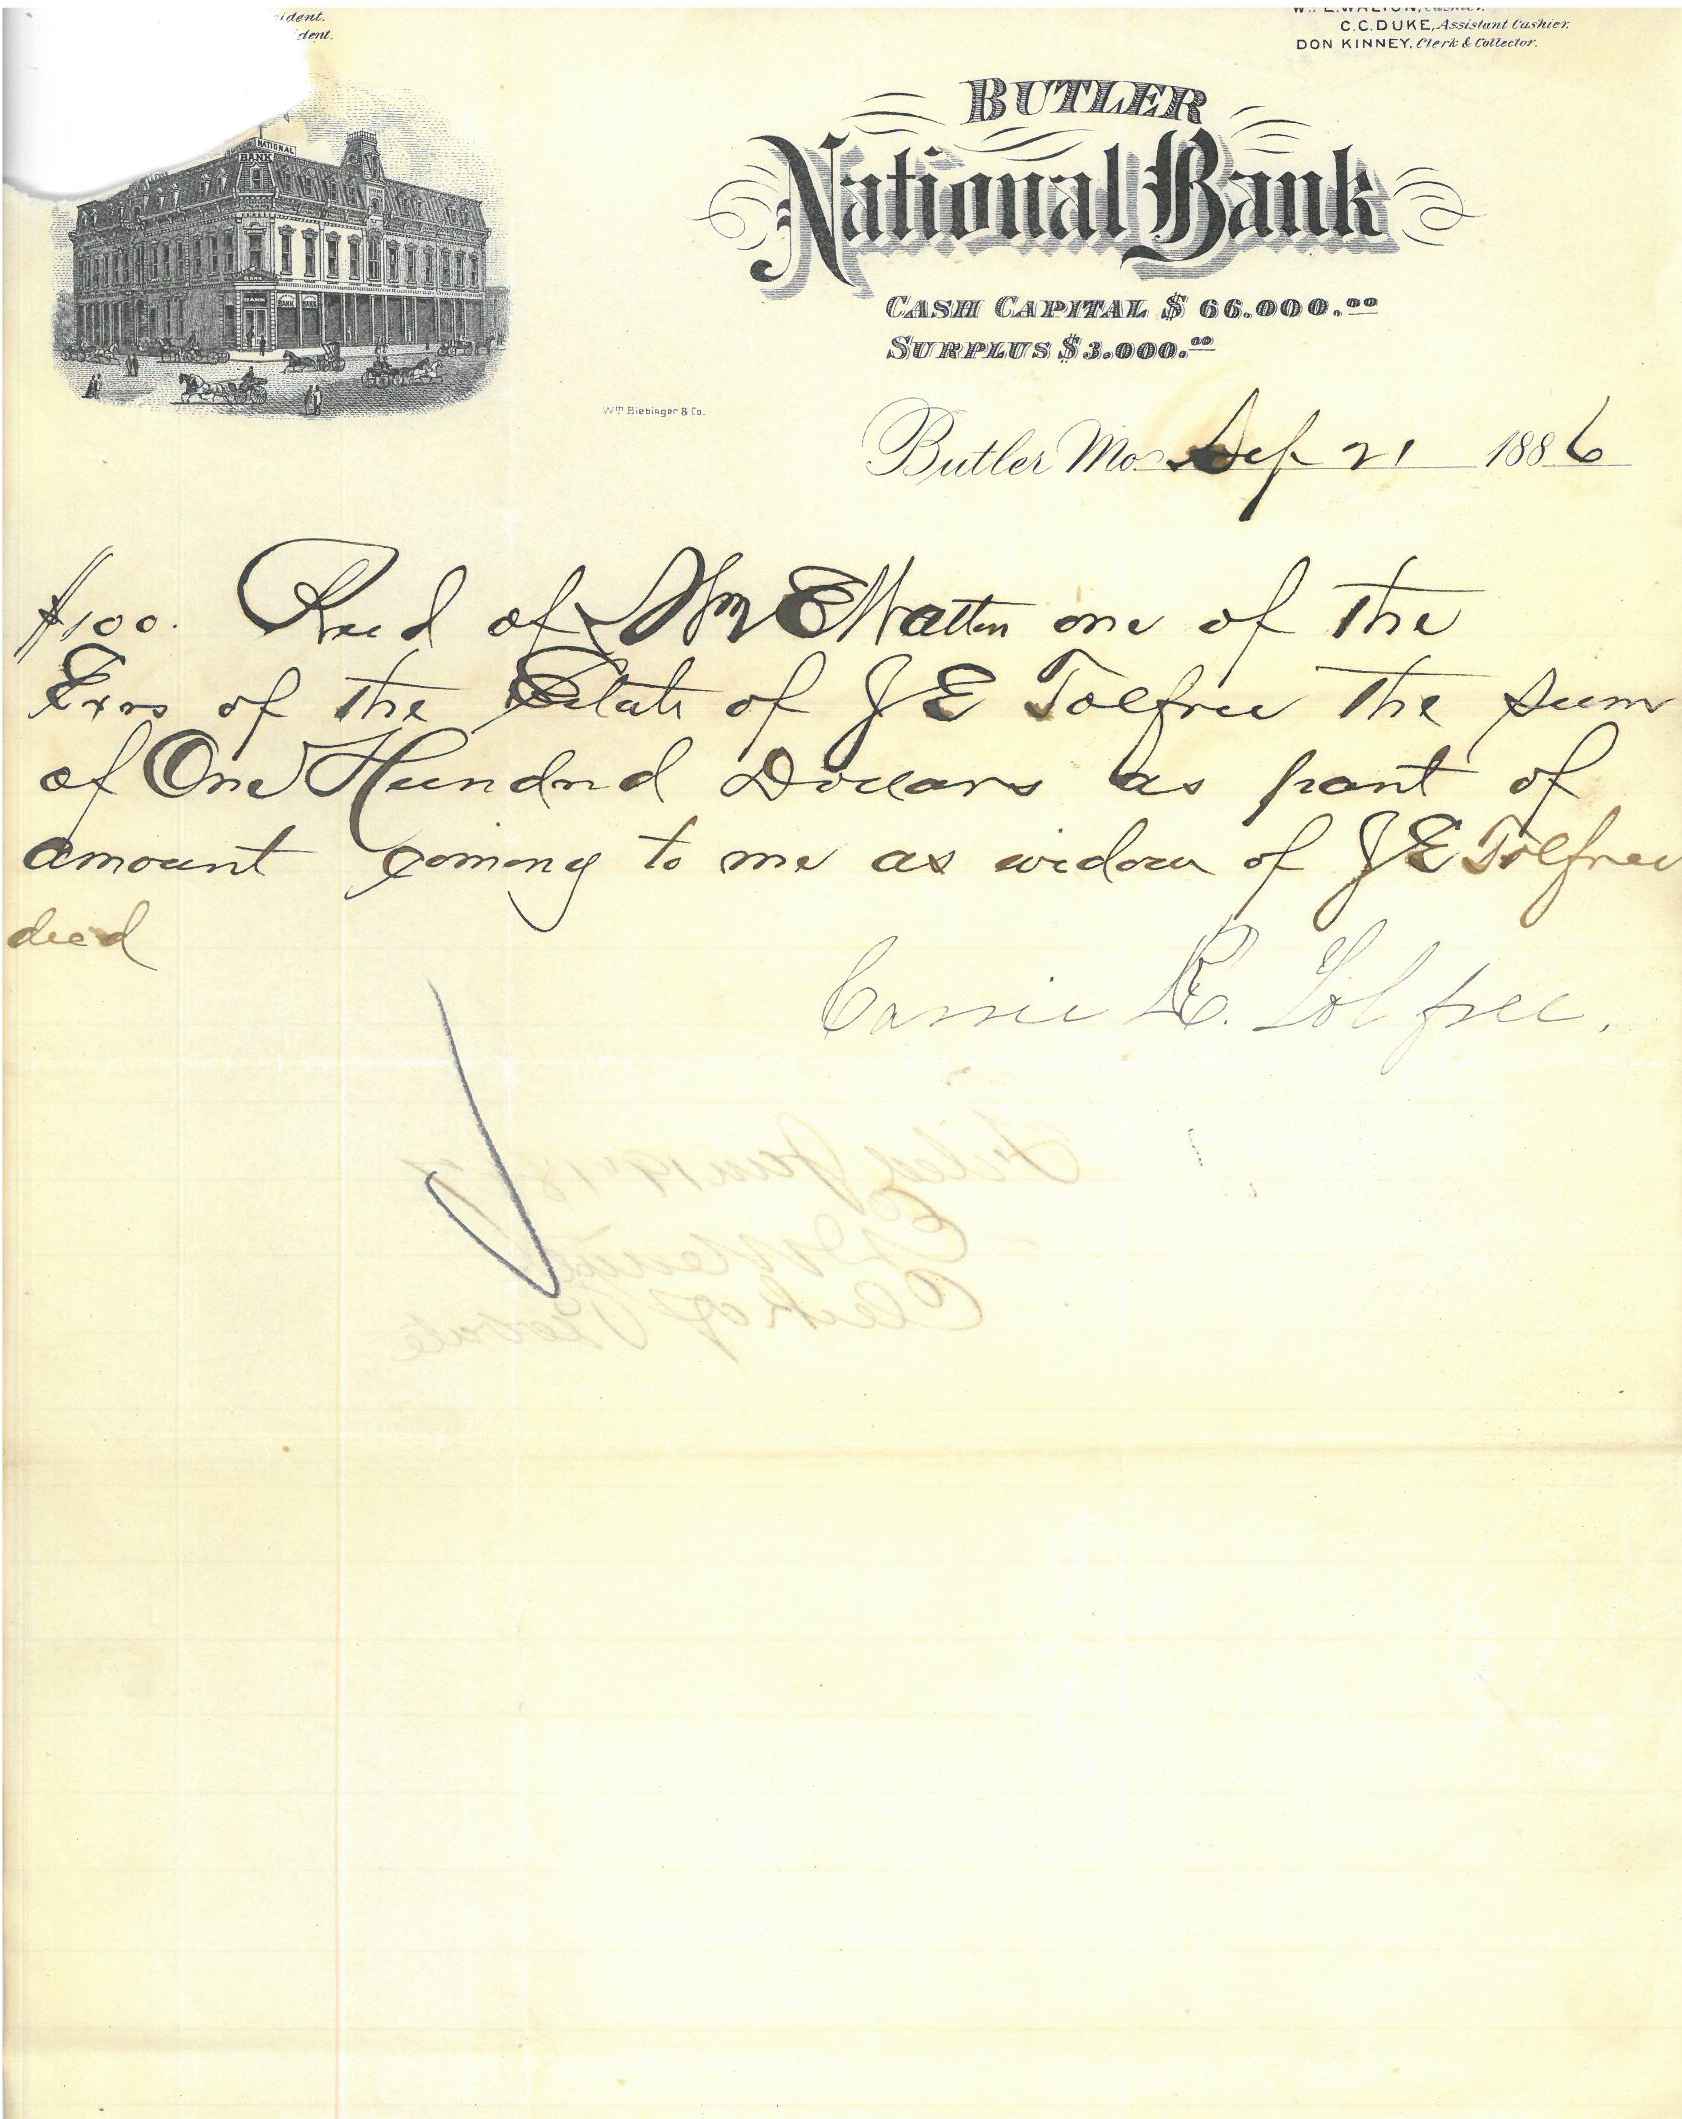 ident.
dent.
W. E. WALTON, Cashier.
C. C. DUKE, Assistant Cashier.
DON KINNEY, Clerk & Collector.
NATIONAL
BANK
BANK
BANK
BANK
BANK
BUTLER
National Bank
CASH CAPITAL $ 66.000.00
SURPLUS $3.000.00
Wm Biebinger & Co.
Butler Mo. Sep 21 1886
$100. Recd of Wm E Walton one of the
Exrs of the Estate of J E Tolfree the sum
of One Hundred Dollars as part of
amount coming to me as widow of J E Tolfree
decd
Carrie E. Tolfree.
Filed Jan 19 1887
Clerk of Probate